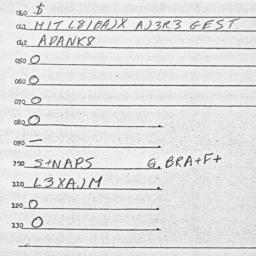 010 $
011 MIT L8/BA)X A)3R3 GEST
012 ADANK8
050 O
060 O
070 O
080 O
090 —
100 S+NAPS G. BRA+F+
110 L3XA)M
120 O
130 O